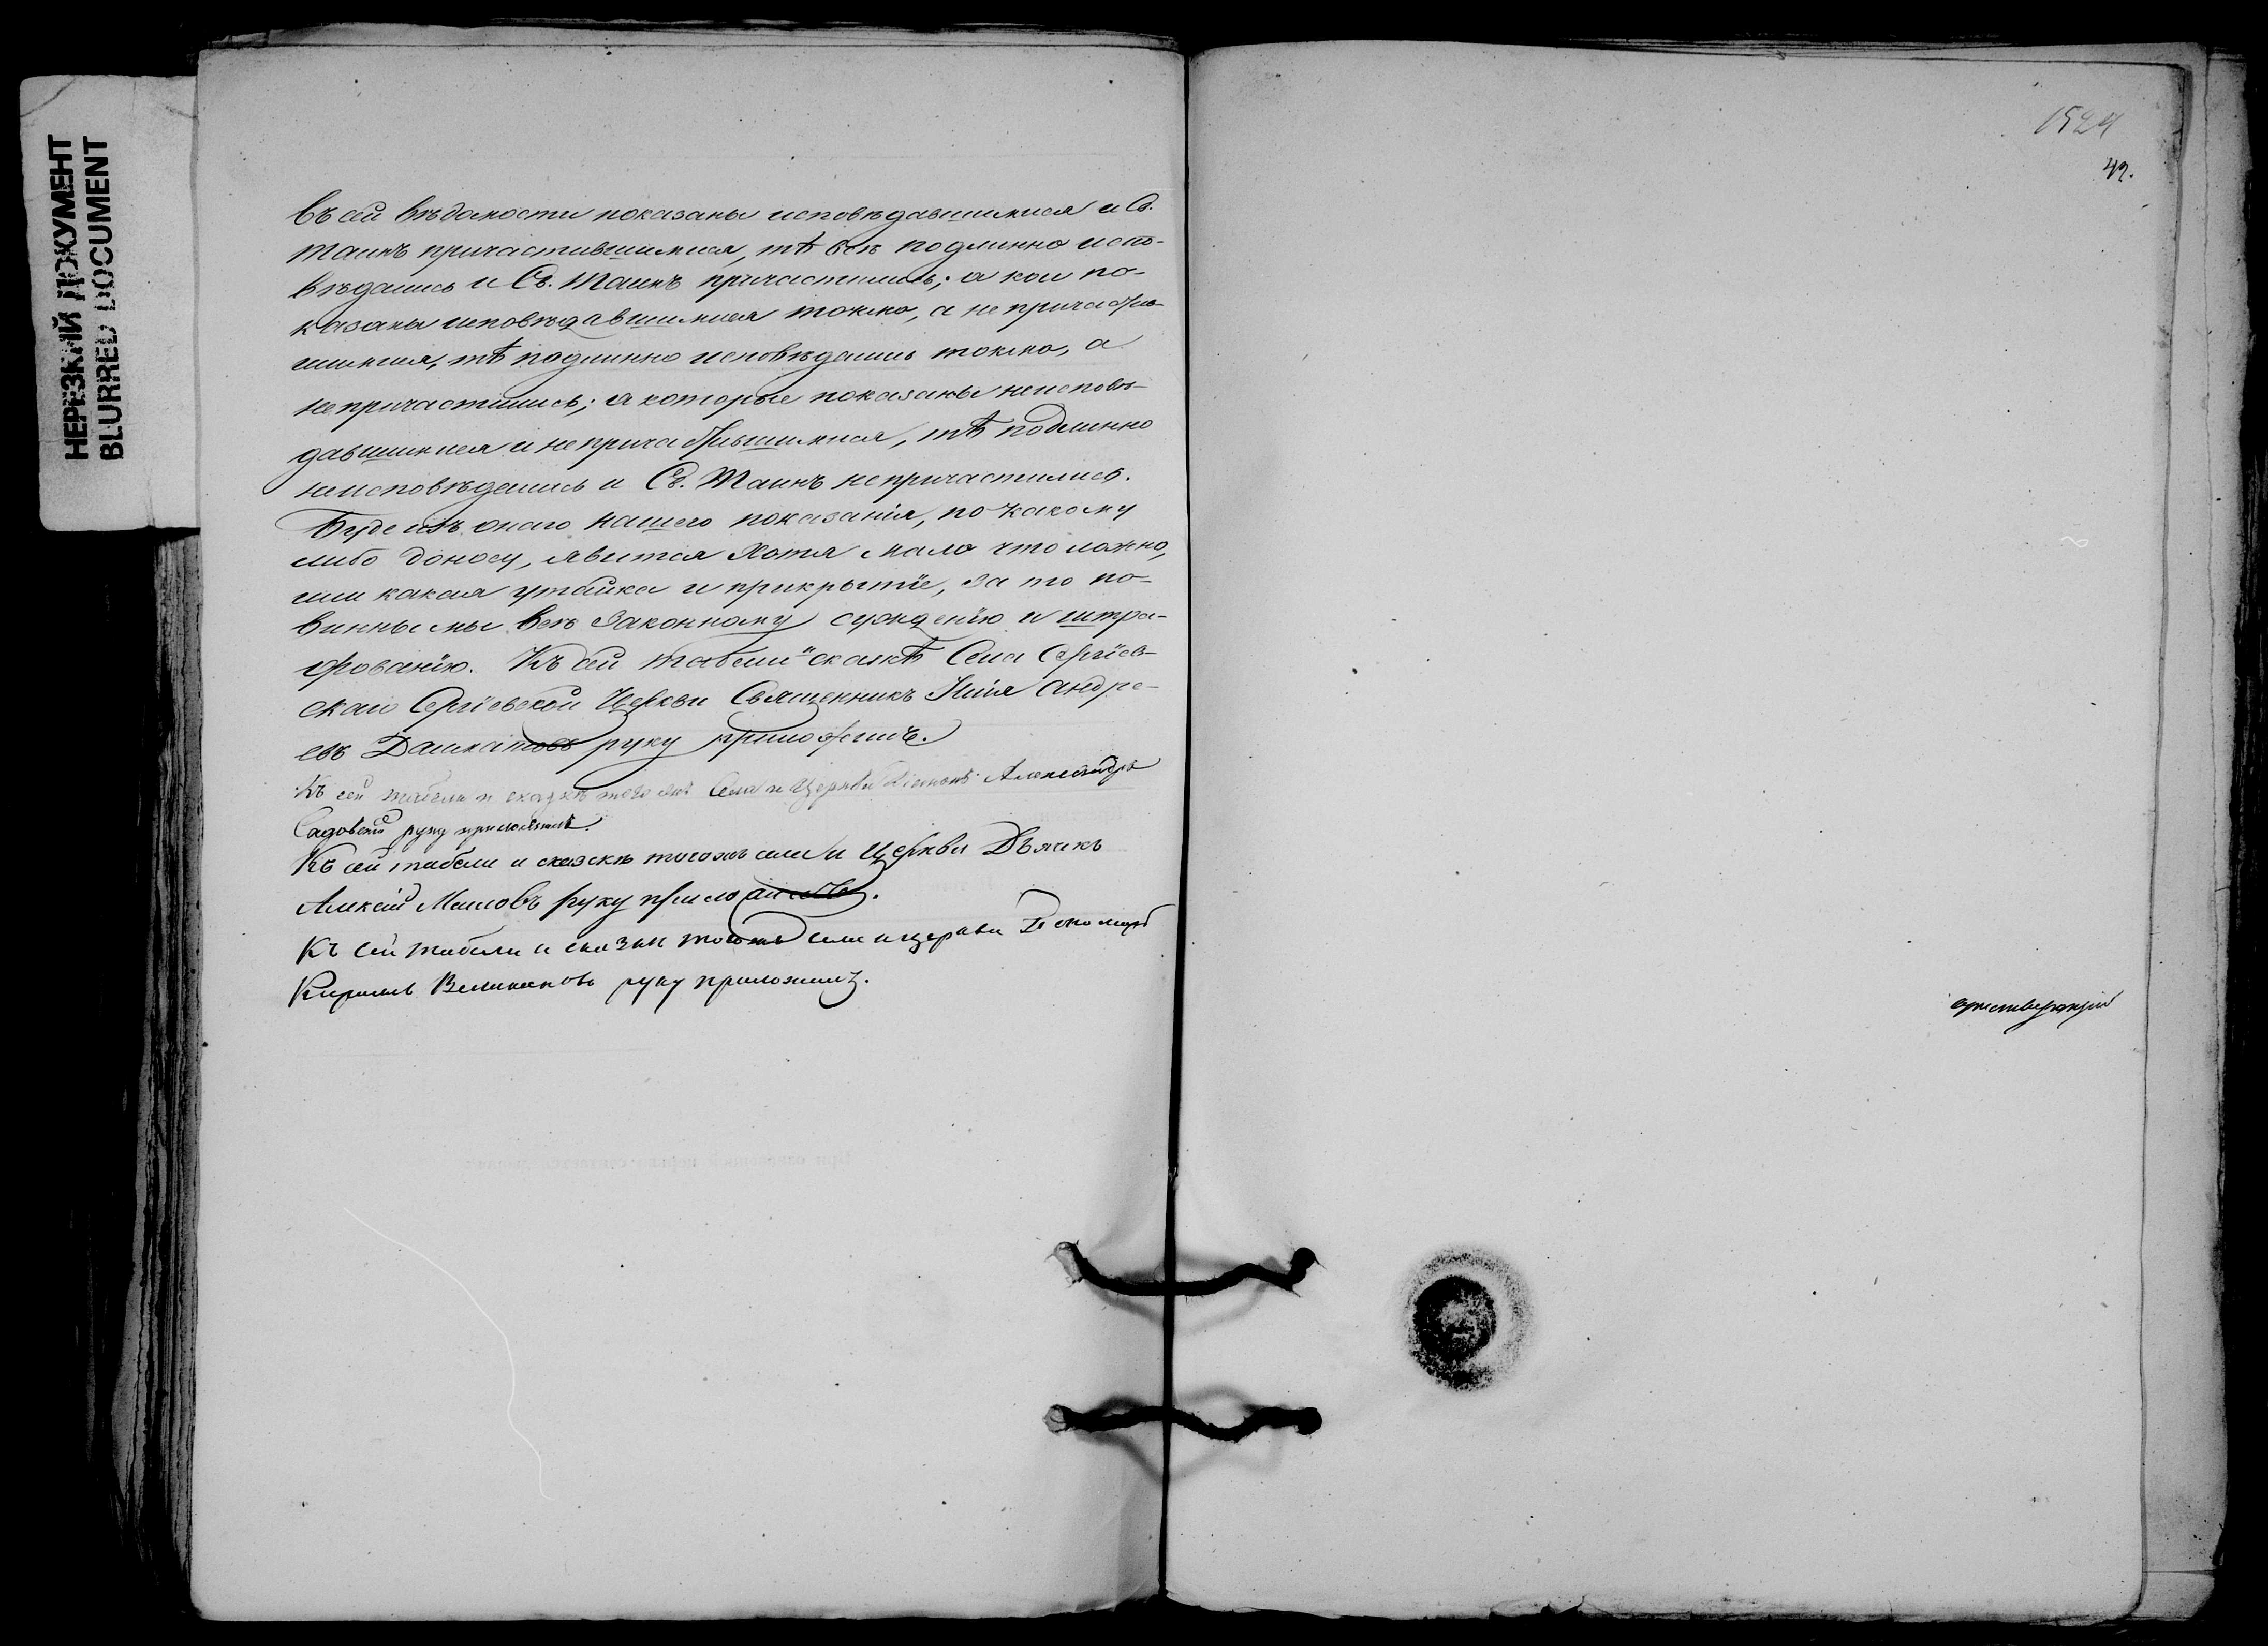 НЕРЕЗКИЙ ДОКУМЕНТ
BLURRED DOCUMENT
въ сей вѣдомости показаны исповѣдавшимися и Св.
Таинъ причастившимися, тѣ всѣ подлинно испо-
вѣдались и Св. Таинъ причастились; а кои по-
казаны исповѣдавшимися токмо, а не причастив-
шимися, тѣ подлинно исповѣдались токмо, а
не причастились; а которые показаны неисповѣ-
давшимися и непричастившимися, тѣ подлинно
неисповѣдались и Св. Таинъ не причастились.
Буде изъ онаго нашего показанія, по какому
либо доносу, явится хотя мало что ложно,
или какая утайка и прикрытіе, за то по-
винны мы всѣ законному суждению и штра-
фованію. Къ сей табели и сказкѣ Села Сергіев-
скаго Сергіевской Церкви Священникъ Илія Андре-
евъ Дашкатовъ руку приложилъ.
Къ сей табели и сказкѣ того же Села и Церкви Діаконъ Александръ
Садовскій руку приложилъ.
Къ сей табели и сказкѣ тогожъ села и Церкви Дьячекъ
Алексій Маиловъ руку приложилъ.
Къ сей табели и сказки тогоже села и церкви Пономарь
Кирилъ Великановъ руку приложилъ.
1524
42.